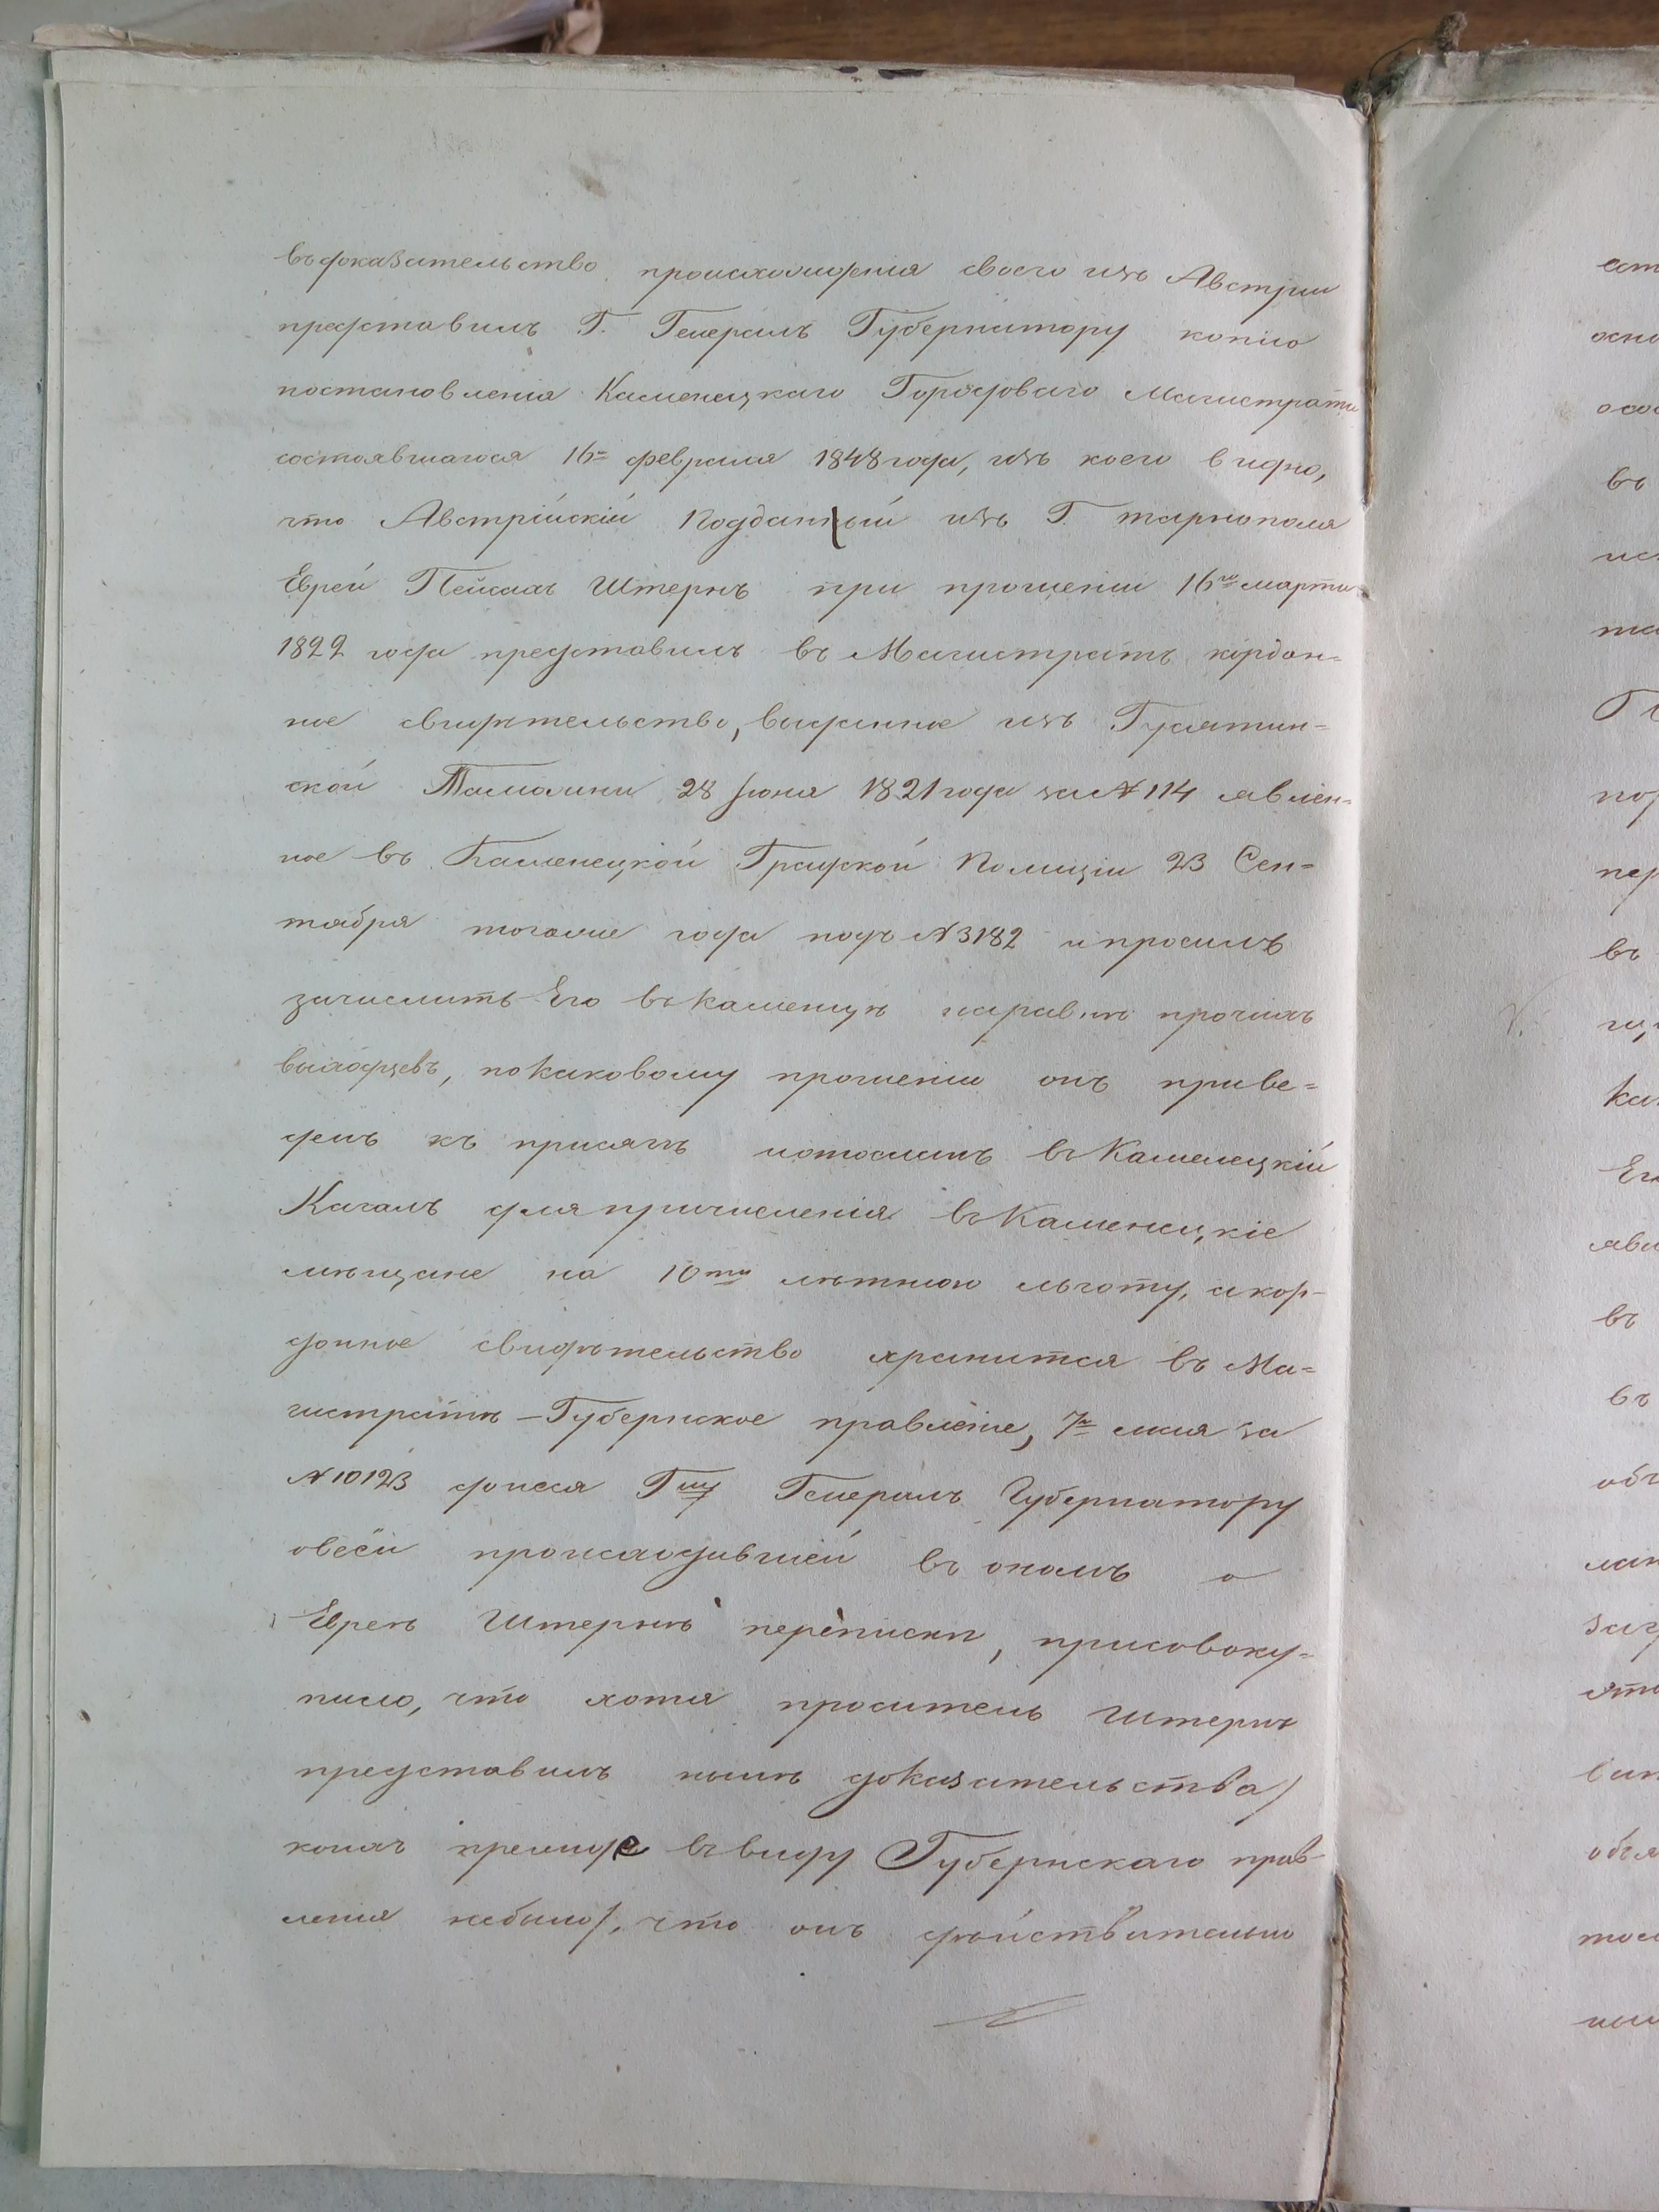 въ доказательство происхождения своего изъ Австріи
представилъ Г. Генералъ Губернатору копію
постановленія Каменецкаго Городоваго Магистрата
состоявшагося 16го февраля 1848 года, изъ коего видно,
что Австрійскій Подданный изъ Г. тарнополя
Еврей Пейсахъ Штернъ при прошеніи 16го марта
1822 года представилъ въ Магистратъ кордон=
ное свидѣтельство, выданное изъ Гусятин=
ской Таможни 28 Іюня 1821 года за № 114 явлен=
ное въ Каменецкой Градской Полиціи 23 Сен=
тября тогоже года подъ № 3182 и просилъ
зачислить Его въ Каменцѣ наравнѣ прочихъ
выходцевъ, по каковому прошенію онъ приве=
денъ къ присягѣ и отосланъ въ Каменецкій
Кагалъ для причисленія въ Каменецкіе
мѣщане на 10ти лѣтнюю льготу, а кор-
донное свидѣтельство хранится въ Ма=
гистратѣ – Губернское правленіе, 7го мая за
№ 10123 донеся Гну Генералъ Губернатору
о всей происходившей въ ономъ о
Евреѣ Штернѣ перепискѣ, присовоку=
пило, что хотя проситель Штернъ
представилъ нынѣ доказательства /
коихъ прежде въ виду Губернскаго прав-
ленія небыло /, что онъ дѣйствительно
въ
въ
въ
въ